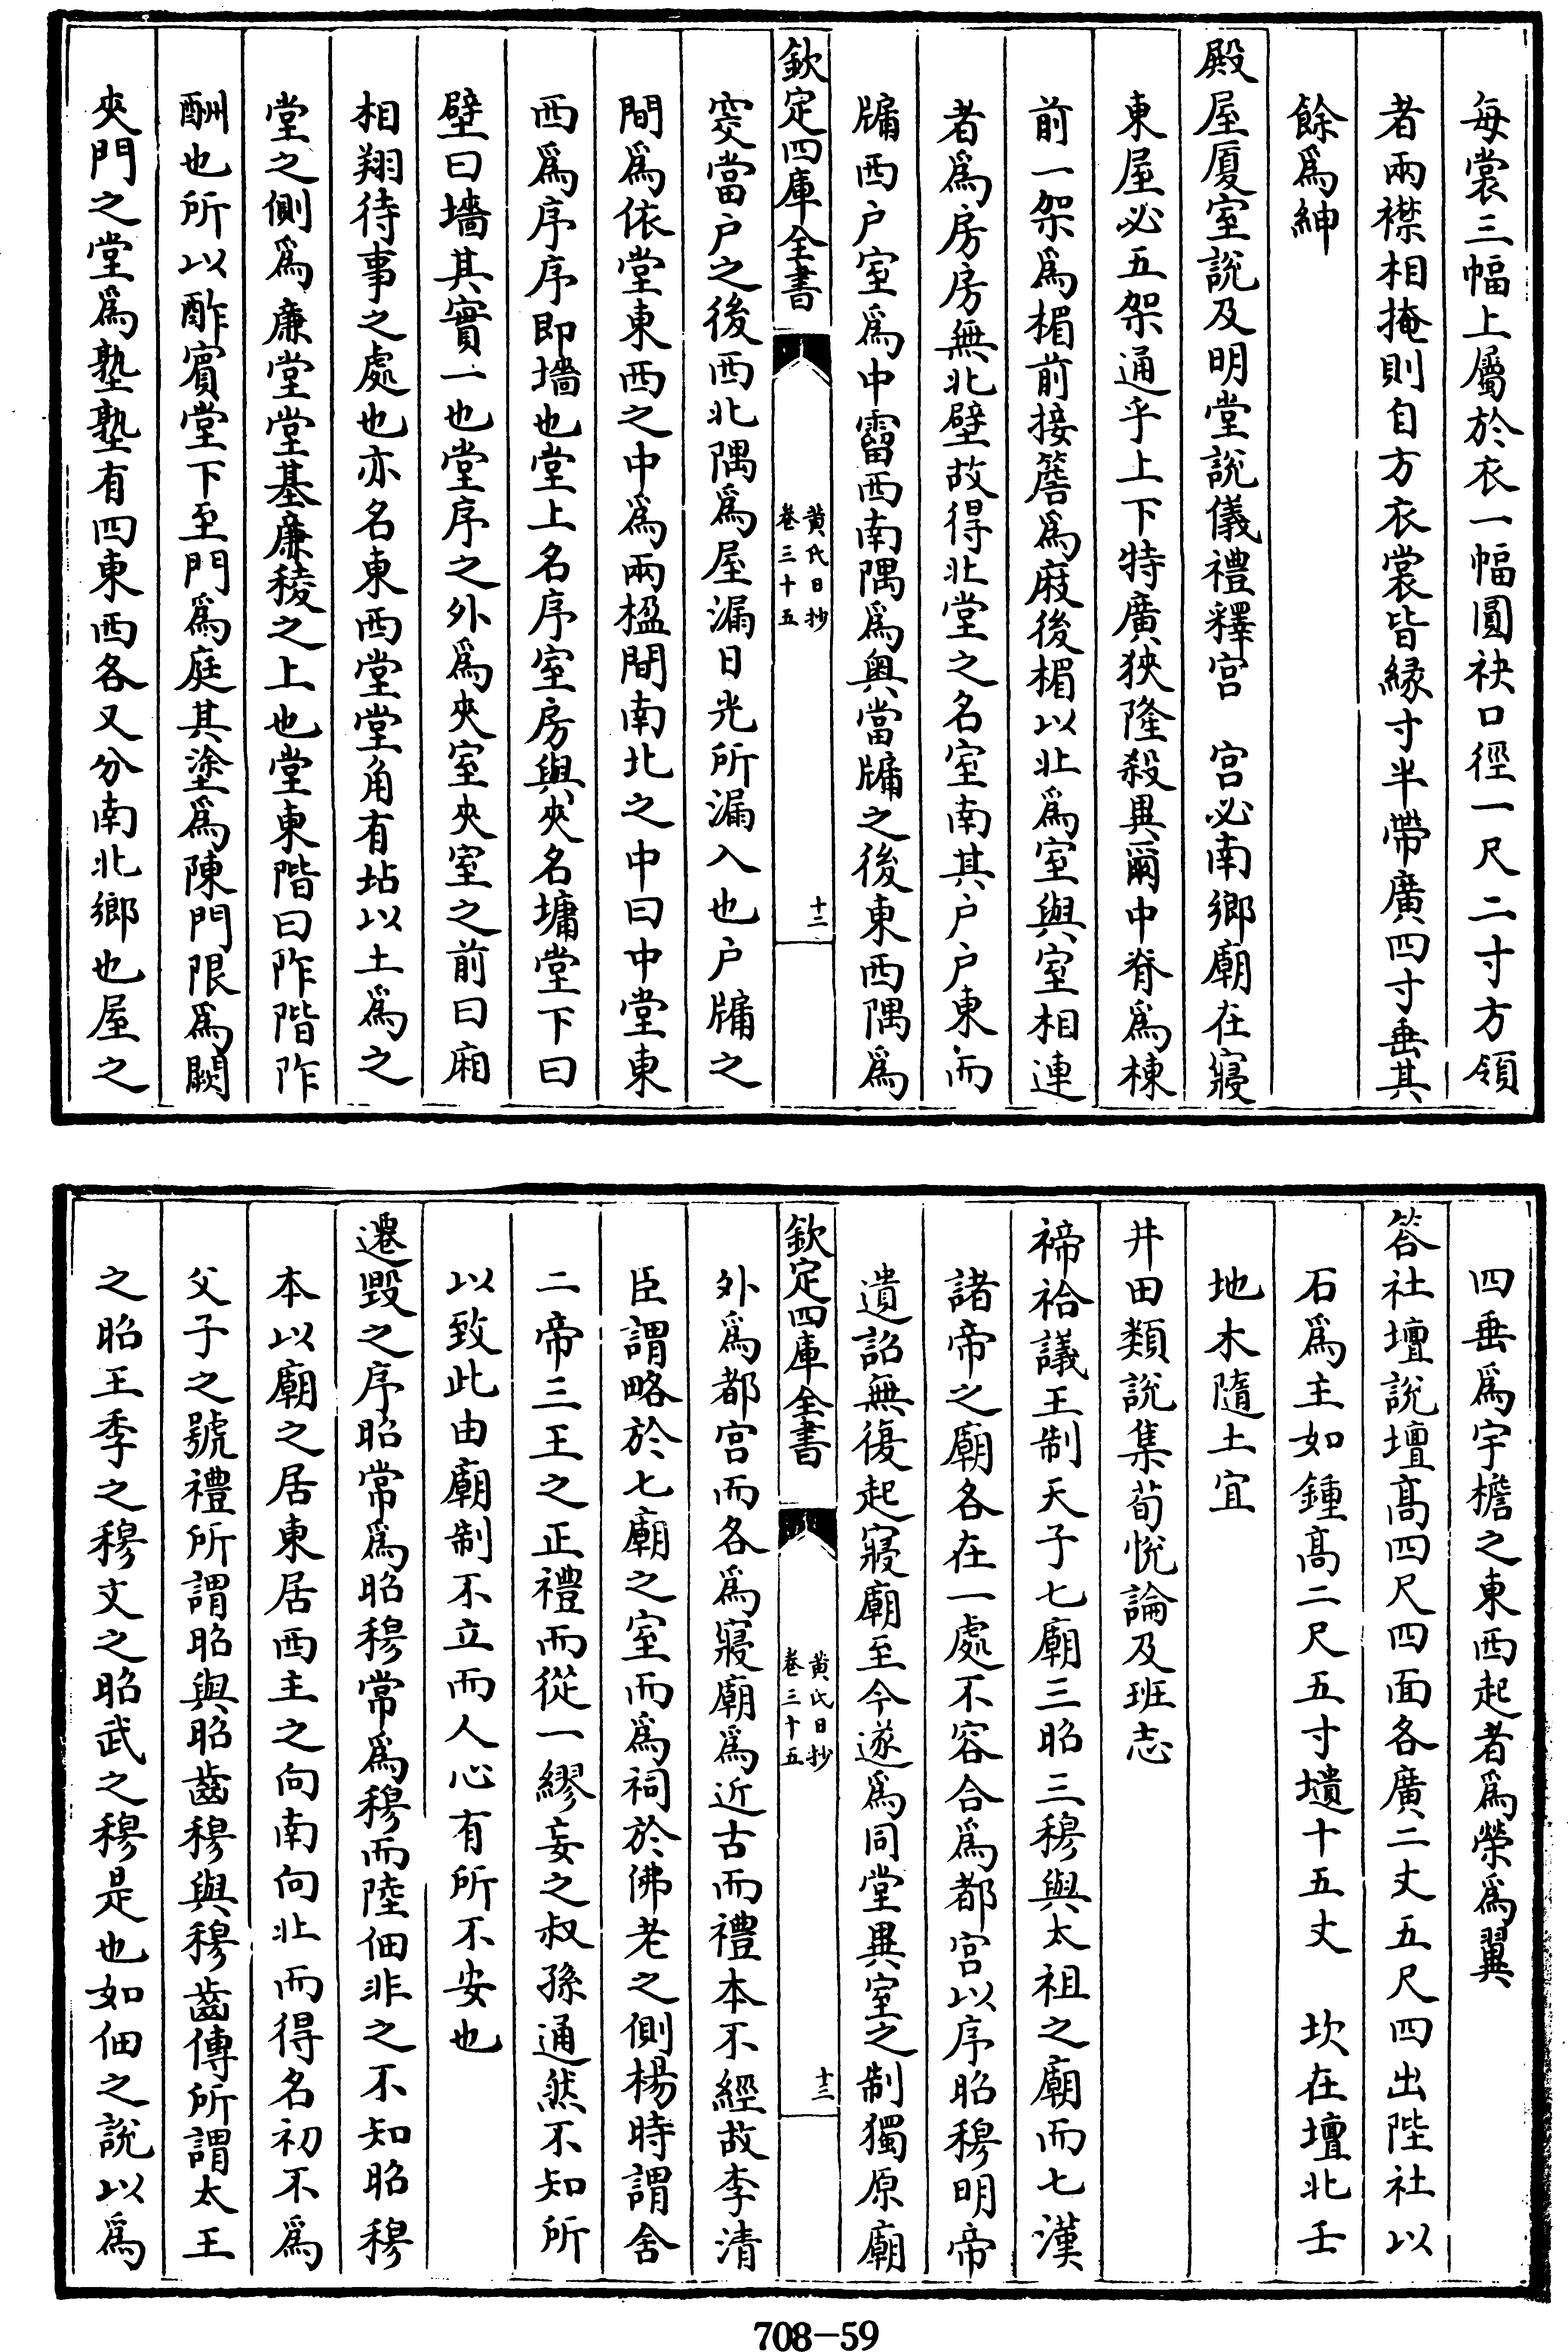 每裳三幅上屬於衣一幅圓袂口徑一尺二寸方領
者兩襟相掩則自方衣裳皆縁寸半帶廣四寸垂其
餘爲紳
殿屋厦室說及明堂說儀禮釋宫　宫必南鄉廟在寢
東屋必五架通乎上下特廣狹隆殺異爾中脊爲棟
前一架爲楣前接簷爲庪後楣以北爲室與室相連
者爲房房無北壁故得北堂之名室南其户户東而
牖西户室爲中霤西南隅爲奥當牖之後東西隅爲
欽定四庫全書
黄氏日抄
卷三十五
十二
窔當户之後西北隅爲屋漏日光所漏入也户牖之
間爲依堂東西之中爲兩楹間南北之中曰中堂東
西爲序序即墻也堂上名序室房與夾名墉堂下曰
壁曰墻其實一也堂序之外爲夾室夾室之前曰廂
相翔待事之處也亦名東西堂堂角有坫以土爲之
堂之側爲亷堂堂基亷稜之上也堂東階曰阼階阼
酬也所以酢賓堂下至門爲庭其塗爲陳門限爲闕
夾門之堂爲塾塾有四東西各又分南北鄉也屋之
四垂爲宇檐之東西起者爲榮爲翼
答社壇說壇髙四尺四面各廣二丈五尺四出陛社以
石爲主如鍾髙二尺五寸壝十五丈　坎在壇北壬
地木隨土宜
井田類說集荀悅論及班志
禘祫議王制天子七廟三昭三穆與太祖之廟而七漢
諸帝之廟各在一處不容合爲都宫以序昭穆明帝
遺詔無復起寢廟至今遂爲同堂異室之制獨原廟
欽定四庫全書
黄氏日抄
卷三十五
十三
外爲都宫而各爲寢廟爲近古而禮本不經故李清
臣謂略於七廟之室而爲祠於佛老之側楊時謂舍
二帝三王之正禮而從一繆妄之叔孫通然不知所
以致此由廟制不立而人心有所不安也
遷毁之序昭常爲昭穆常爲穆而陸佃非之不知昭穆
本以廟之居東居西主之向南向北而得名初不爲
父子之號禮所謂昭與昭齒穆與穆齒傳所謂太王
之昭王季之穆文之昭武之穆是也如佃之說以爲
708-59